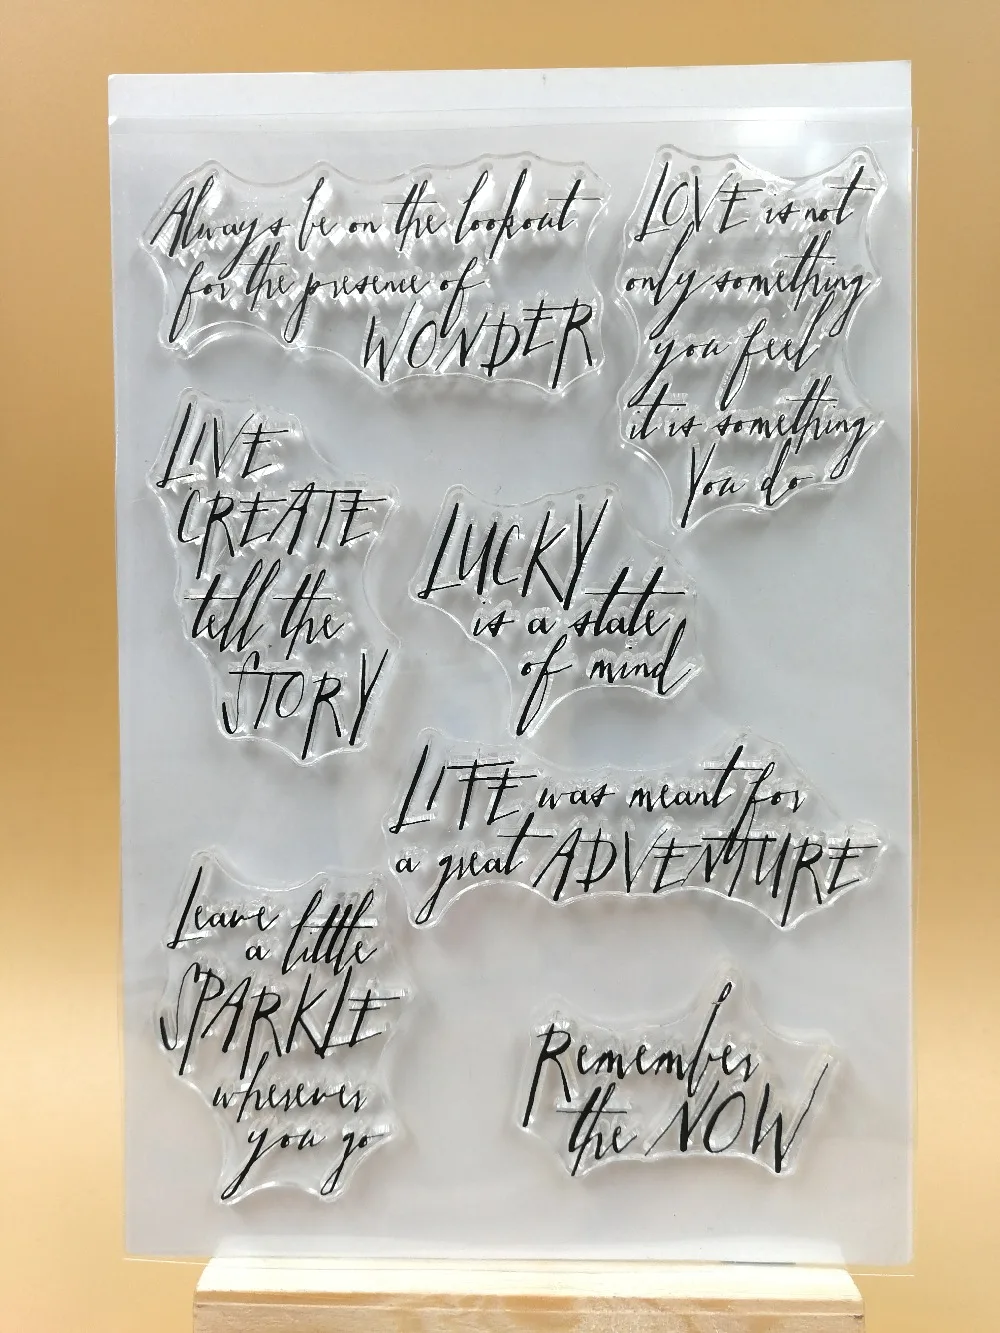 Always be on the lookout
for the presence of
WONDER
LOVE is not
only something
you feel
it is something
You do
LIVE
CREATE
tell the
STORY
LUCKY
is a state
of mind
LIFE was meant for
a great ADVENTURE
Leave
a little
SPARKLE
wherever
you go
Remember
the NOW